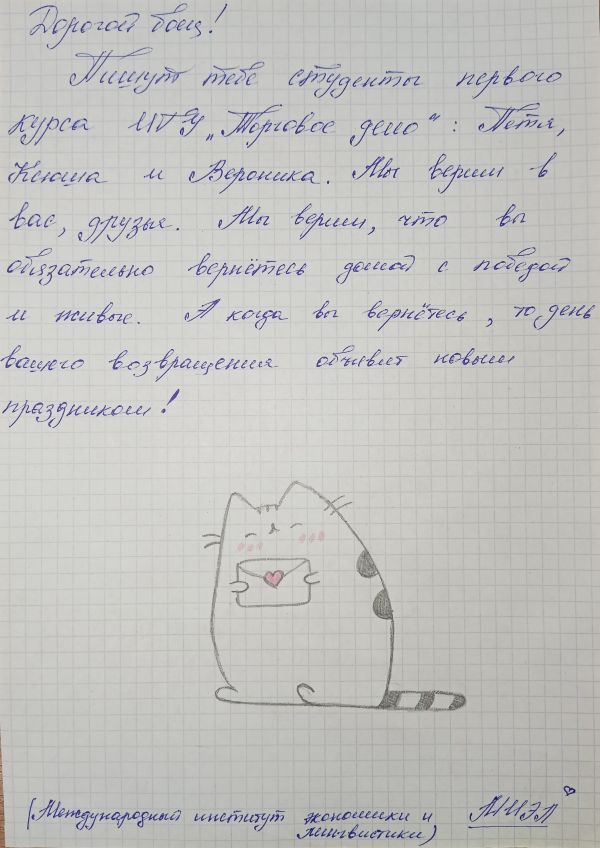 Дорогой боец!
Пишут тебе студенты первого
курса ИГУ „Торговое дело“: Петя,
Ксюша и Вероника. Мы верим в
вас, друзья. Мы верим, что вы
обязательно вернётесь домой с победой
и живые. А когда вы вернётесь, то день
вашего возвращения объявят новым
праздником!
(Международный институт экономики и
лингвистики)
МИЭЛ